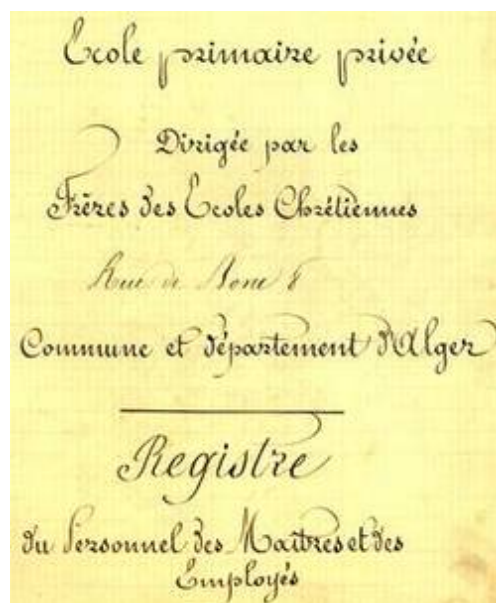 Ecole primaire privée
Dirigée par les
Frères des Ecoles Chrétiennes
Rue de Bone 8
Commune et département d'Alger
Registre
du Personnel des Maîtres et des
Employés